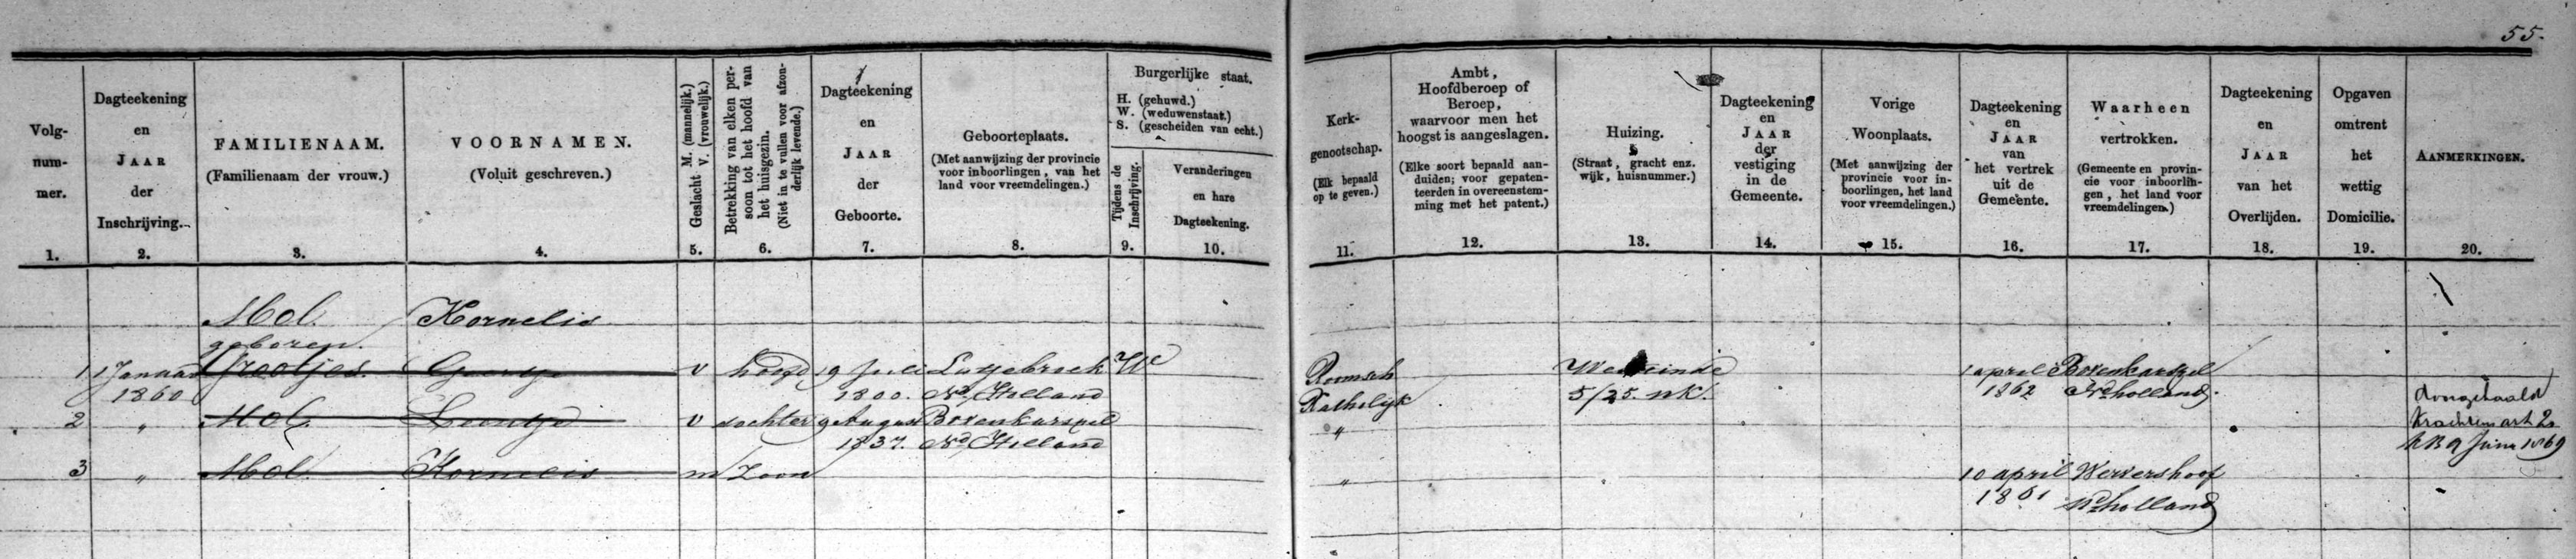 55.
Volg-
num-
mer.
1.
Dagteekening
en
JAAR
der
Inschrijving.
2.
FAMILIENAAM.
(Familienaam der vrouw.)
3.
VOORNAMEN.
(Voluit geschreven.)
4.
Geslacht M. (mannelijk.)
V. (vrouwelijk.)
5.
Betrekking van elken per-
soon tot het hoofd van
het huisgezin.
(Niet in te vullen voor afzon-
derlijk levende.)
6.
Dagteekening
en
JAAR
der
Geboorte.
7.
Geboorteplaats.
(Met aanwijzing der provincie
voor inboorlingen, van het
land voor vreemdelingen.)
8.
Burgerlijke staat.
H. (gehuwd.)
W. (weduwenstaat.)
S. (gescheiden van echt.)
Tijdens de
Inschrijving.
9.
Veranderingen
en hare
Dagteekening.
10.
Kerk-
genootschap.
(Elk bepaald
op te geven.)
11.
Ambt,
Hoofdberoep of
Beroep,
waarvoor men het
hoogst is aangeslagen.
(Elke soort bepaald aan-
duiden; voor gepaten-
teerden in overeenstem-
ming met het patent.)
12.
Huizing.
(Straat, gracht enz.
wijk, huisnummer.)
13.
Dagteekening
en
JAAR
der
vestiging
in de
Gemeente.
14.
Vorige
Woonplaats.
(Met aanwijzing der
provincie voor in-
boorlingen, het land
voor vreemdelingen.)
15.
Dagteekening
en
JAAR
van
het vertrek
uit de
Gemeente.
16.
Waarheen
vertrokken.
(Gemeente en provin-
cie voor inboorlin-
gen, het land voor
vreemdelingen.)
17.
Dagteekening
en
JAAR
van het
Overlijden.
18.
Opgaven
omtrent
het
wettig
Domicilie.
19.
AANMERKINGEN.
20.
Mol Kornelis
geboren
1 1 Januari Grootjes Geertje v hoofd 19 Juli Lutjebroek We Roomsch Westeinde 1 april Bovenkarspel
1860 1800. Nd Holland Katholijk 5/25. nk. 1862 Ndholland.
2 " Mol Leentje v dochter 9 August Bovenkarspel "
1837. Nd Holland
3 " Mol Kornelis m Zoon " 10 april Wervershoof
1861 Ndholland
doorgehaald
Krachtens art 2
KB 9 Juni 1869